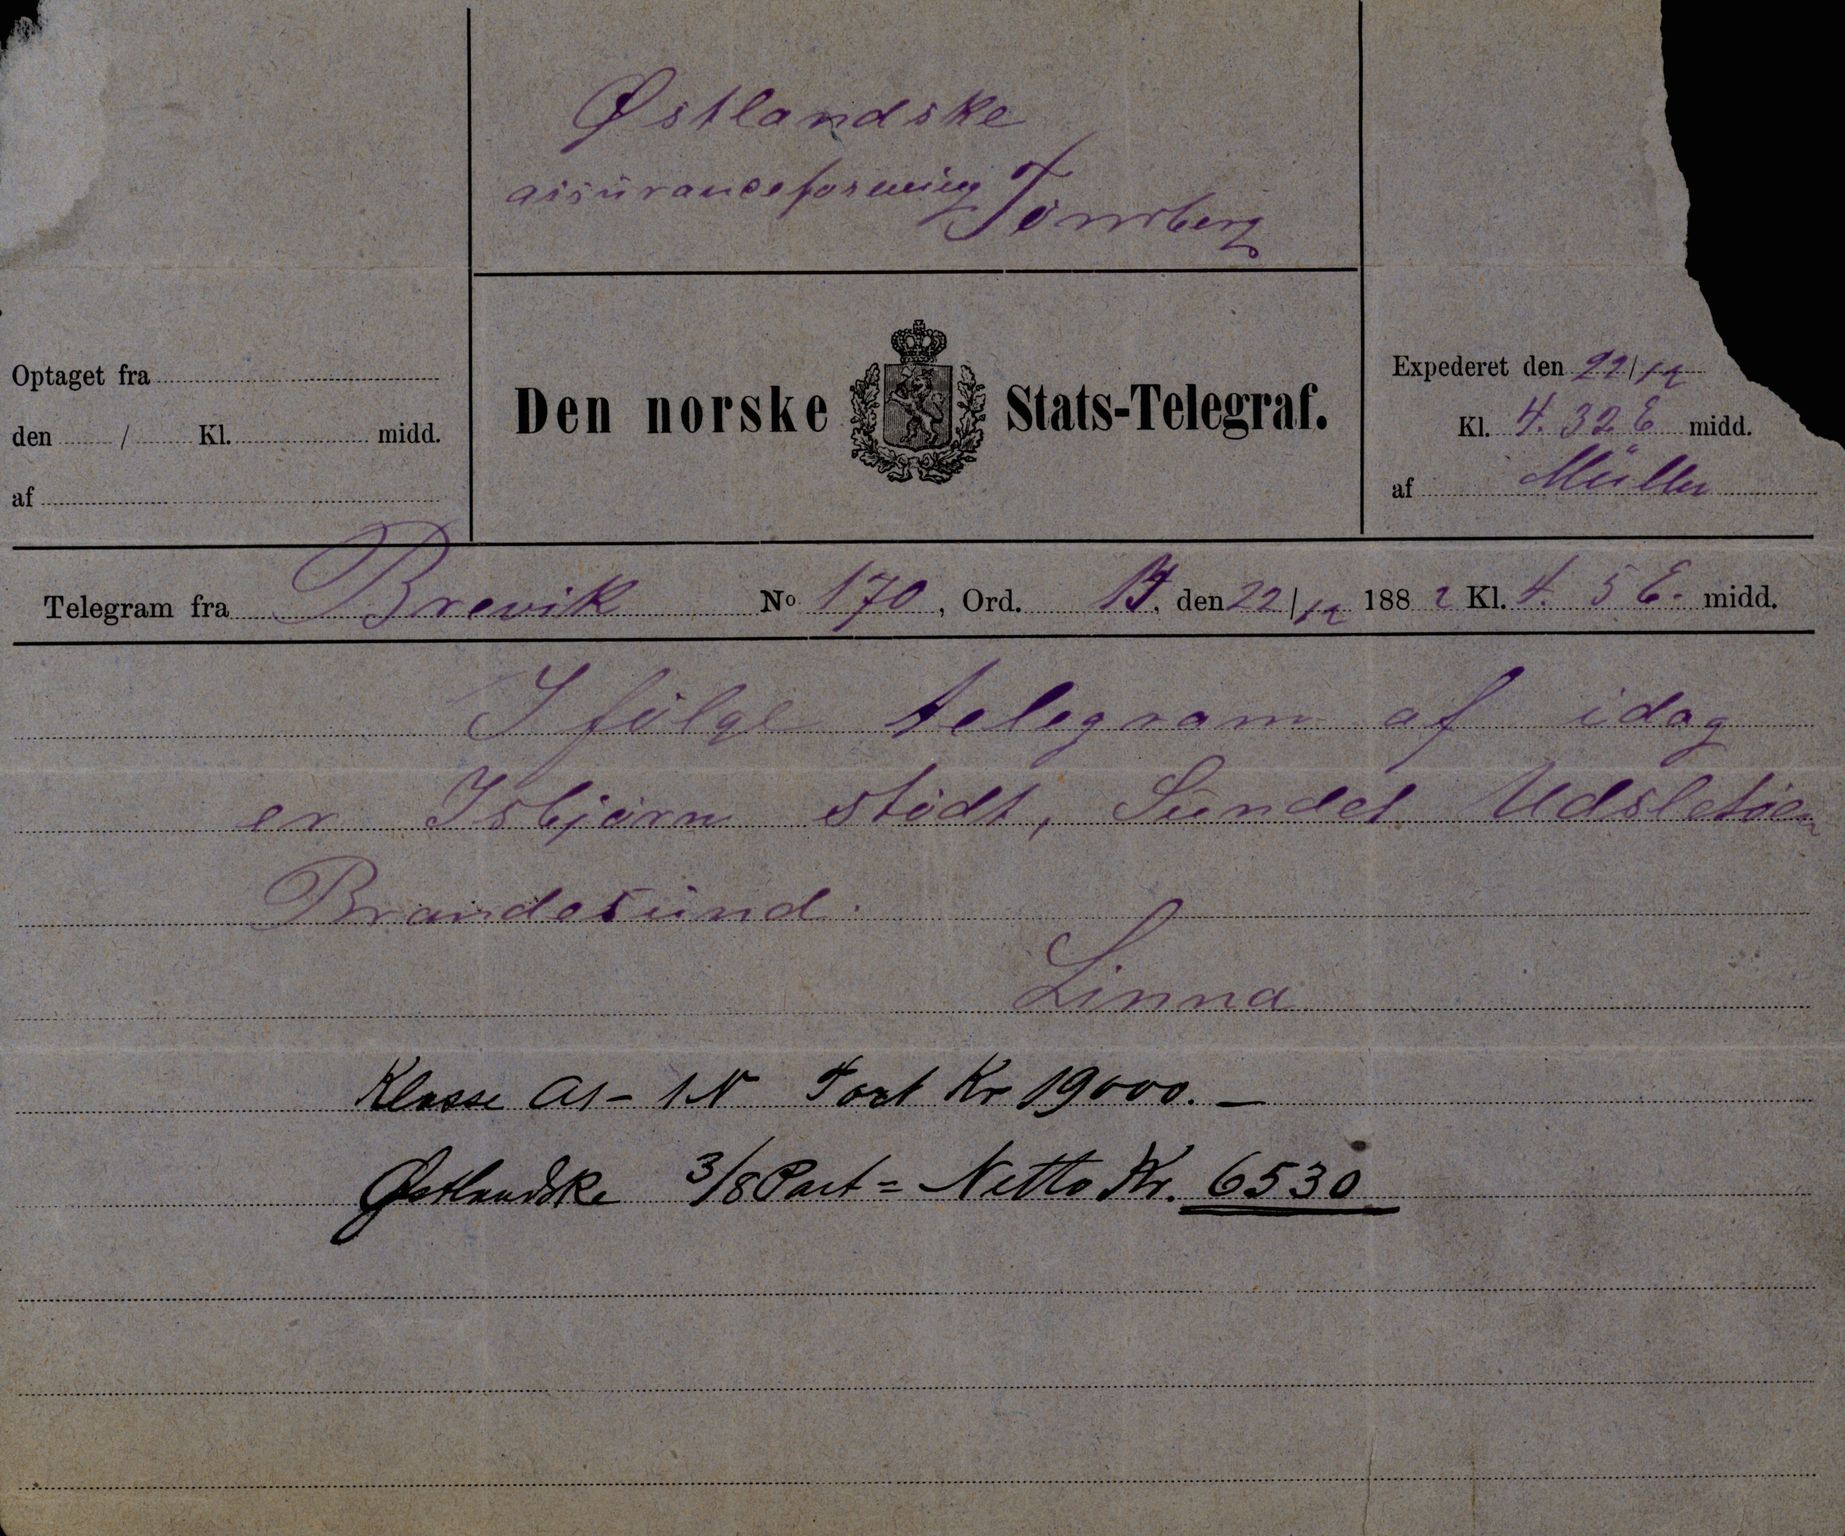 Østlandske
assuranceforening Tönsberg
Optaget fra
den / Kl. midd.
af
Den norske Stats-Telegraf.
Expederet den 22/12
Kl. 4.32 E midd.
af Müller
Telegram fra Brevik No 170, Ord. den 22/12 1882 Kl. 4. 5 E. midd.
Ifölge telegram af idag
er Isbjörn stödt, Sundet Udsletöen
Brandesund.
Linna
Klasse A1 - 1N Taxt Kr 19000. —
Østlandske 3/8 Part = Netto Kr. 6530